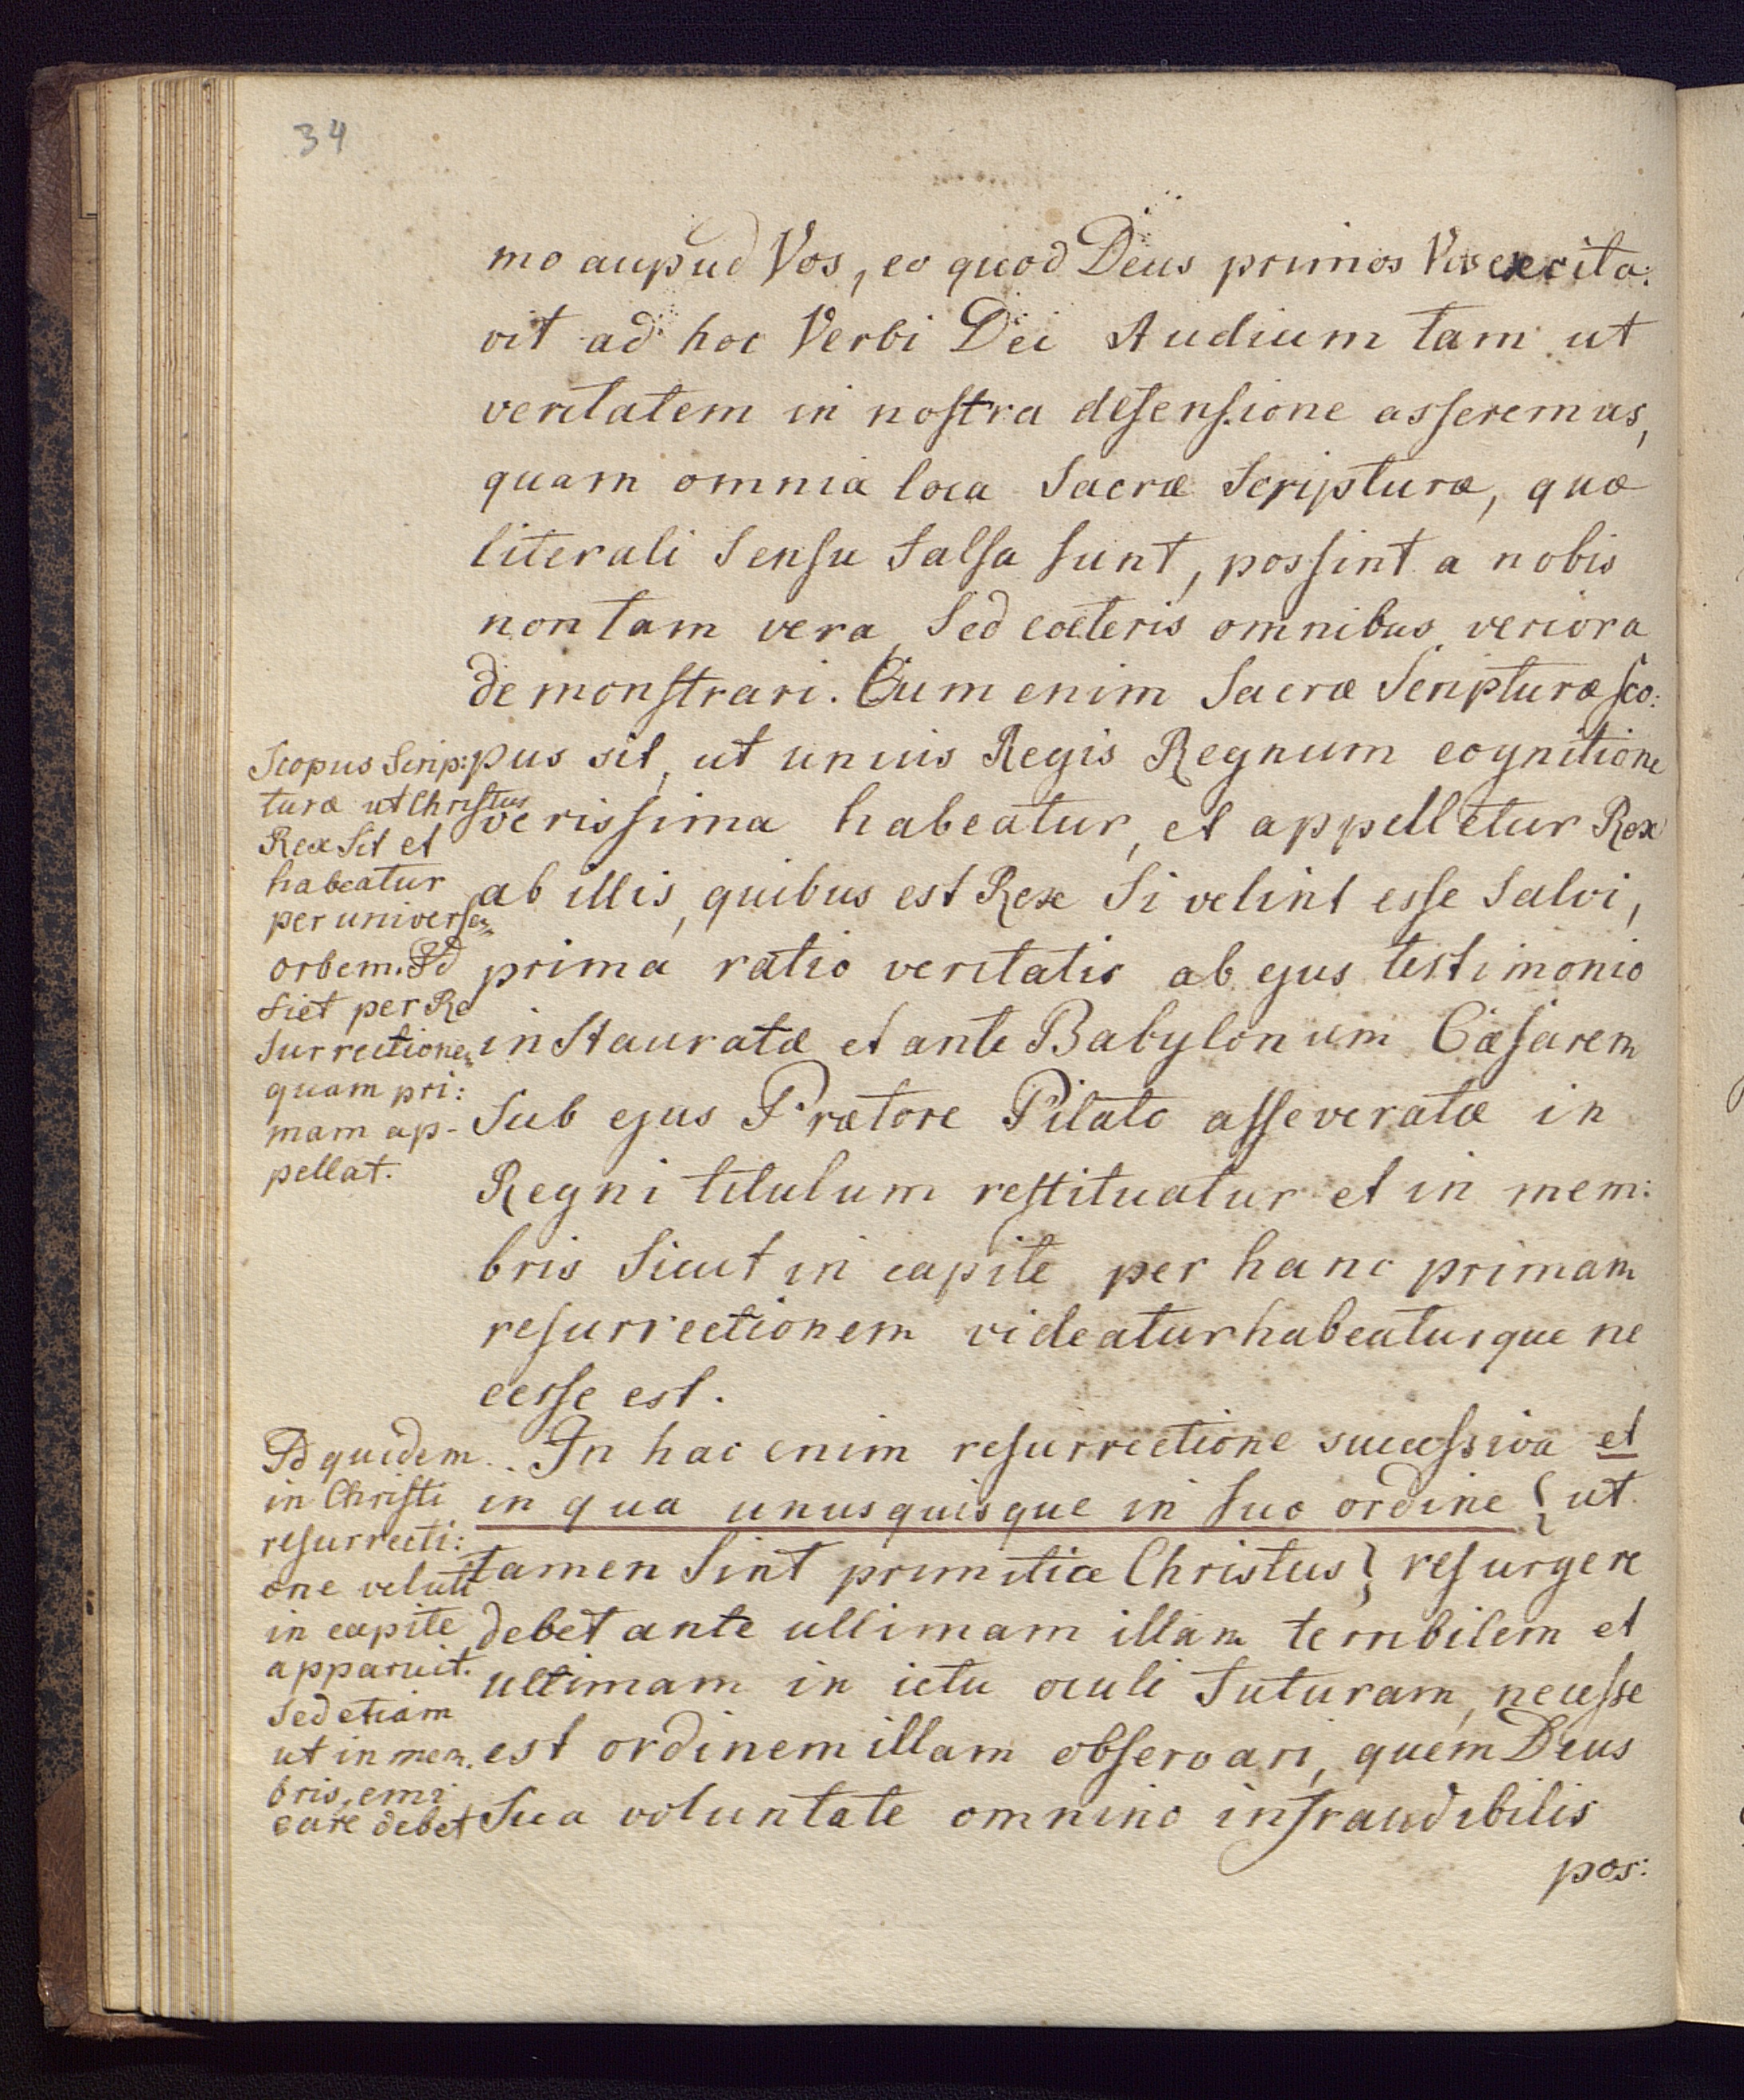 34
mo aupud Vos, eo quod Deus primos Vos excita:
vit ad hoc Verbi Dei Studium tam ut
veritatem in noſtra defenſione asſeremus,
quam omnia loca Sacræ Scripturæ, quæ
literali Senſu falſa ſunt, posſint a nobis
non tam vera, Sed cæteris omnibus veriora
demonſtrari. Cum enim Sacræ Scripturæ ſco:
pus sit, ut unius Regis Regnum cognitione
verisſima habeatur, et appelletur Rex
ab illis, quibus est Rex Si velint esſe Salvi,
prima ratio veritatis ab ejus testimonio
inſtauratæ et ante Babylonum Cæſarem
Sub ejus Prætore Pilato aſſeveratæ in
Regni titulum reſtituatur et in mem:
bris Sicut in capite per hanc primam
reſurrectionem videatur habeaturque ne
cesſe est.
In hac enim reſurrectione succeſsiva et
in qua unusquisque in ſuo ordine { ut
tamen Sint primitiæ Christus } reſurgere
debet ante ultimam illam terribilem et
ultimam in ictu oculi futuram, neceſse
est ordinem illam obſervari, quem Deus
Sua voluntate omnino infraudibilis
pos:
Scopus Scrip:
turæ ut Chriſtus
Rex Sit et
habeatur
per univerſam
orbem. Id
fiet per Re
ſurrectionem
quam pri:
mam ap-
pellat.
Id quidem
in Chriſti
reſurrecti:
one veluti
in capite
apparuit.
Sed etiam
ut in mem.
bris, emi
care debet